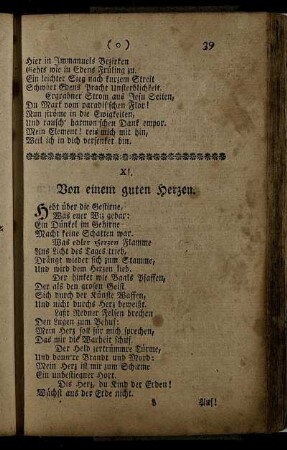 ( o ) 39
Hier in Immanuels Bezirken
Gehts wie in Edens Früling zu.
Ein leichter Sieg nach kurzem Streit
Schwört Edens Pracht Unsterblichkeit.
Erhabner Strom aus Jesu Seiten,
Du Mark vom paradißschen Flor!
Nun ströme in die Ewigkeiten,
Und rausch' harmon'schen Dank empor.
Mein Element! reis mich mit hin,
Weil ich in dich versenket bin.
XI.
Von einem guten Herzen.
Hebt über die Gestirne,
Was euer Wiz gebar:
Ein Dünkel im Gehirne
Macht keine Schatten war.
Was edler Herzen Flamme
Ans Licht des Tages trieb,
Drängt wieder sich zum Stamme,
Und wird dem Herzen lieb.
Der hinket wie Baals Pfaffen,
Der als den grosen Geist
Sich durch der Künste Waffen,
Und nicht durchs Herz beweist.
Laßt Redner Felsen brechen
Den Lügen zum Behuf:
Mein Herz soll für mich sprechen,
Das mir die Warheit schuf.
Der Held zertrümmre Türme,
Und donn're Brandt und Mord:
Mein Herz ist mir zum Schirme
Ein unbestiegner Hort.
Dis Herz, du Kind der Erden!
Wächst aus der Erde nicht.